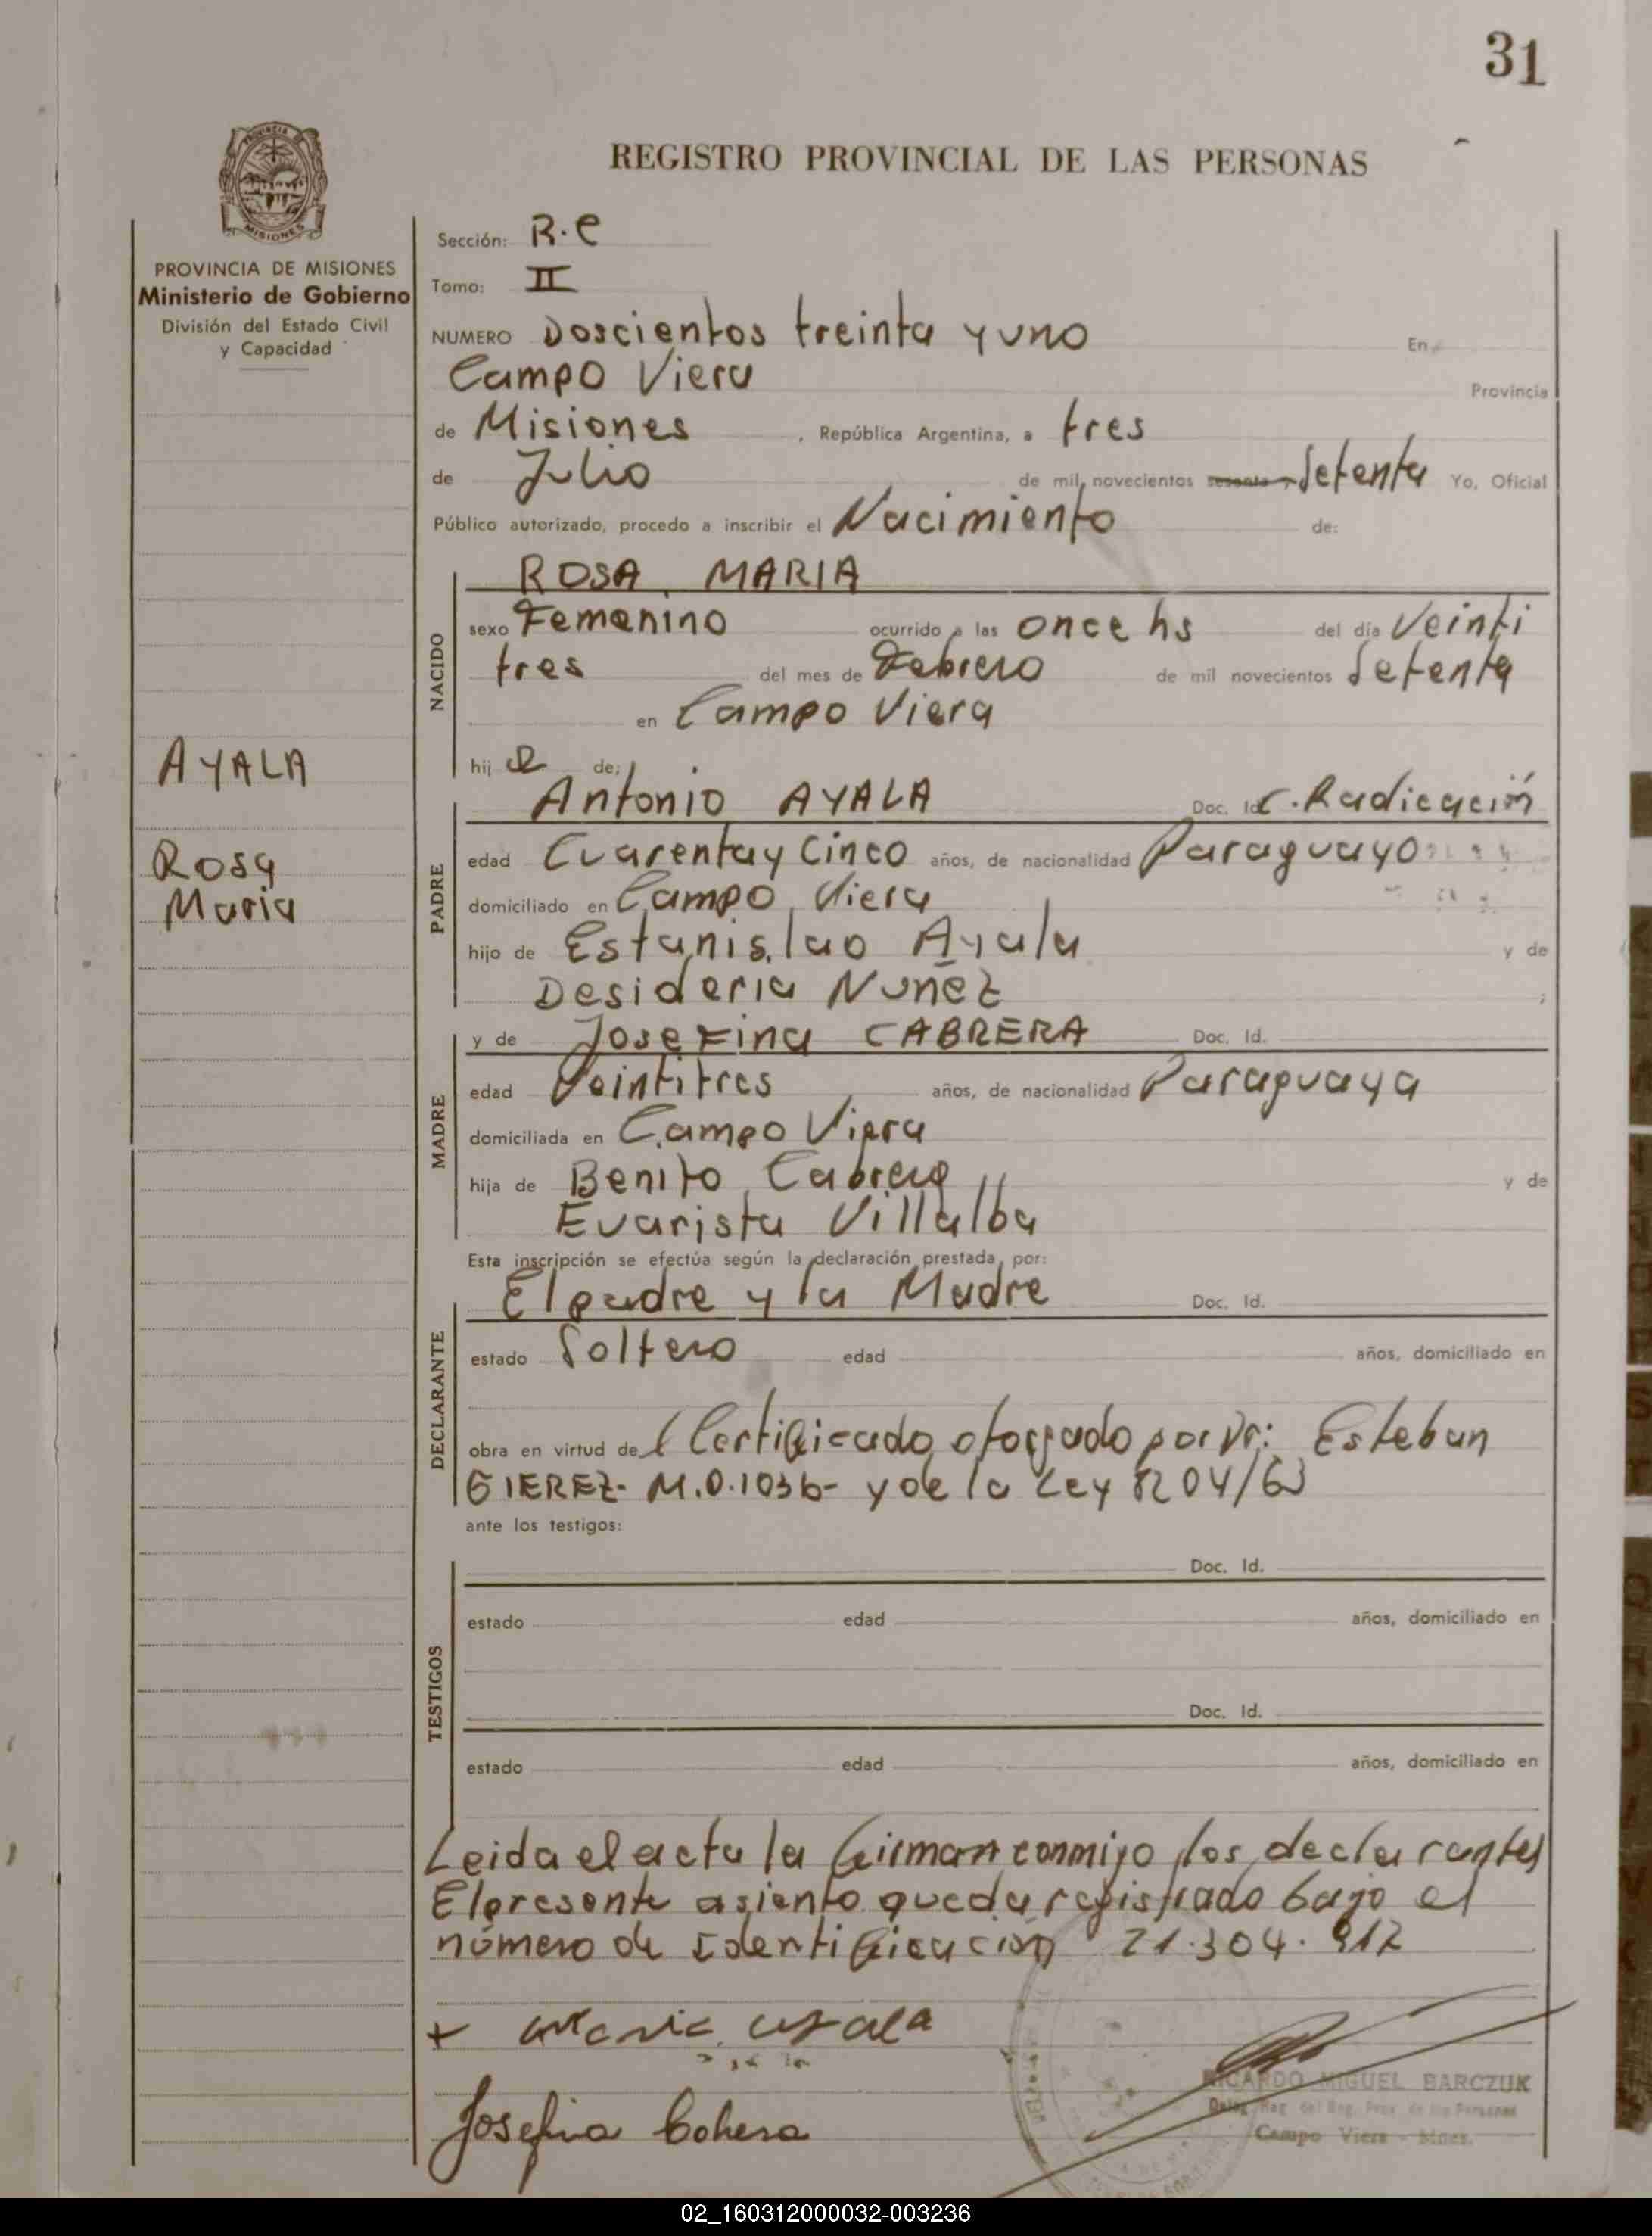 31
REGISTRO PROVINCIAL DE LAS PERSONAS
PROVINCIA DE MISIONES
Ministerio de Gobierno
División del Estado Civil
y Capacidad
AYALA
Rosa
Maria
Sección: R.C
Tomo: II
NUMERO Doscientos treinta y uno En
Campo Viera Provincia
de Misiones , República Argentina, a tres
de Julio de mil novecientos sesenta y Setenta Yo, Oficial
Público autorizado, procedo a inscribir el Nacimiento de:
ROSA MARIA
NACIDO
sexo Femenino ocurrido a las once hs del día Veinti
tres del mes de Febrero de mil novecientos Setenta
en Campo Viera
hij a de:
Antonio AYALA Doc. Id. C. Radicación
PADRE
edad Cuarenta y Cinco años, de nacionalidad Paraguayo
domiciliado en Campo Viera
hijo de Estanislao Ayala y de
Desideria Nuñez ;
y de Josefina CABRERA Doc. Id.
MADRE
edad Veintitres años, de nacionalidad Paraguaya
domiciliada en Campo Viera
hija de Benito Cabrera y de
Evarista Villalba
Esta inscripción se efectúa según la declaración prestada por:
El padre y la Madre Doc. Id.
DECLARANTE
estado Soltero edad años, domiciliado en
obra en virtud del Certificado otorgado por Dr: Esteban
GIEREZ- M.O.1036- y de la Ley 1204/63
ante los testigos:
Doc. Id.
TESTIGOS
estado edad años, domiciliado en
Doc. Id.
estado edad años, domiciliado en
Leida el acta la firman conmigo los declarantes
El presente asiento queda registrado bajo el
número de Identificación 21.304.912
+ ayala
Josefina
RICARDO MIGUEL BARCZUK
Deleg. del Reg. Prov. de las Personas
Campo Viera - Mnes.
02_160312000032-003236